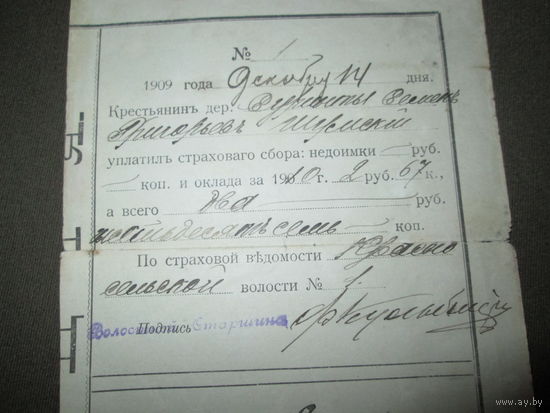 № 1
1909 года Декабря 14 дня.
Крестьянинъ дер. Семенъ
Григорьевъ Шумскій
уплатилъ страховаго сбора: недоимки — руб.
— коп. и оклада за 1910 г. 2 руб. 67 к.,
а всего два руб.
шестьдесятъ семь — коп.
По страховой вѣдомости Красно
сельской волости № 1.
Волостной Старшина
Подпись
www.ay.by